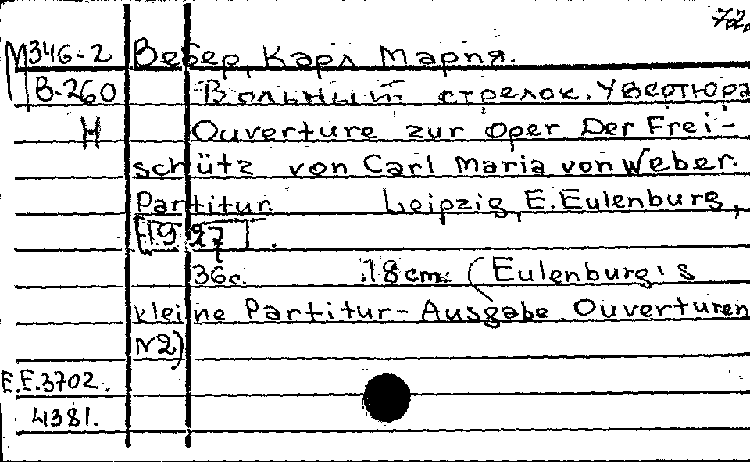 72.
М346-2 Вебер, Карл Мария.
В-260 Вольный стрелок. Увертюра
Н Ouverture zur Oper Der Frei-
schütz von Carl Maria von Weber.
Partitur. Leipzig, E. Eulenburg,
[1927].
36с. 18 cm. (Eulenburg's
kleine Partitur-Ausgabe Ouverturen
N2)
E.E.3702.
4381.